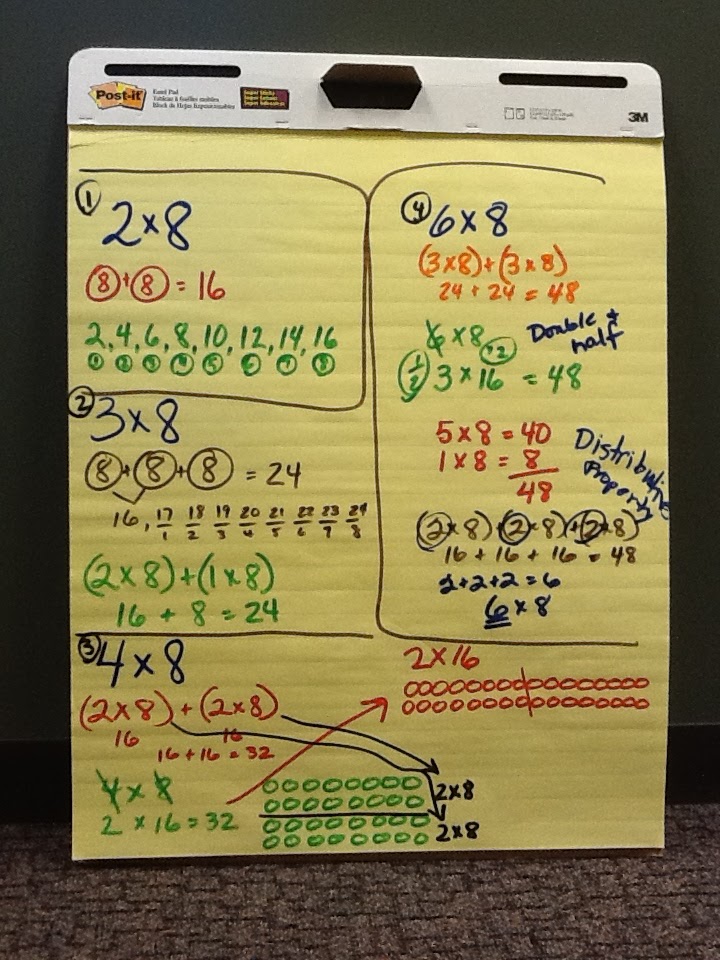 Post-it
Easel Pad
Tableau à feuilles mobiles
Block de Hojas Reposicionables
3M
① 2×8
8+8 = 16
2, 4, 6, 8, 10, 12, 14, 16
① ② ③ ④ ⑤ ⑥ ⑦ ⑧
② 3×8
8+8+8 = 24
16, 17 18 19 20 21 22 23 24
1 2 3 4 5 6 7 8
(2×8)+(1×8)
16 + 8 = 24
③ 4×8
(2×8)+(2×8)
16 16
16+16=32
4×8
2×16=32
2×8
2×8
④ 6×8
(3×8)+(3×8)
24+24=48
6×8 Double & half
×2
1/2 3×16 = 48
5×8=40
1×8=8
48
Distributive Property
(2×8)+(2×8)+(2×8)
16+16+16=48
2+2+2=6
6×8
2×16